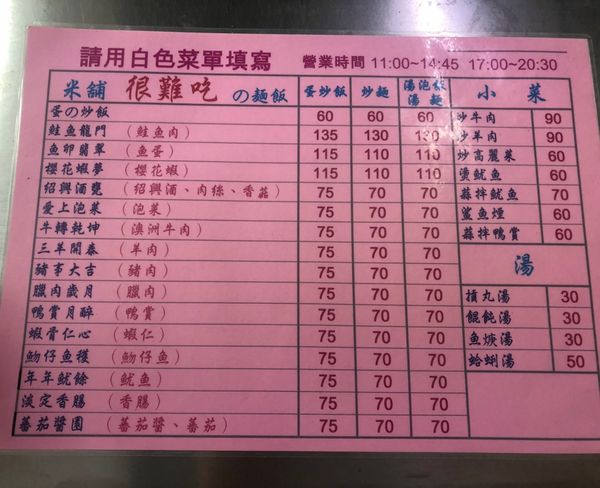 請用白色菜單填寫 營業時間 11:00~14:45 17:00~20:30
米舖 很難吃 の麵飯 蛋炒飯 炒麵 湯泡飯 湯麵
蛋の炒飯 60 60 60
鮭鱼龍門 (鮭鱼肉) 135 130 130
鱼卵翡翠 (鱼蛋) 115 110 110
櫻花蝦夢 (櫻花蝦) 115 110 110
紹興酒甕 (紹興酒、肉絲、香菇) 75 70 70
愛上泡菜 (泡菜) 75 70 70
牛轉乾坤 (澳洲牛肉) 75 70 70
三羊開泰 (羊肉) 75 70 70
豬事大吉 (豬肉) 75 70 70
臘肉歲月 (臘肉) 75 70 70
鴨賞月醉 (鴨賞) 75 70 70
蝦骨仁心 (蝦仁) 75 70 70
魩仔鱼穫 (魩仔鱼) 75 70 70
年年魷餘 (魷鱼) 75 70 70
淡定香腸 (香腸) 75 70 70
蕃茄醬園 (蕃茄醬、蕃茄) 75 70 70
小菜
炒牛肉 90
炒羊肉 90
炒高麗菜 60
燙魷鱼 60
蒜拌魷鱼 70
鯊鱼煙 60
蒜拌鴨賞 60
湯
摃丸湯 30
餛飩湯 30
鱼焿湯 30
蛤蜊湯 50